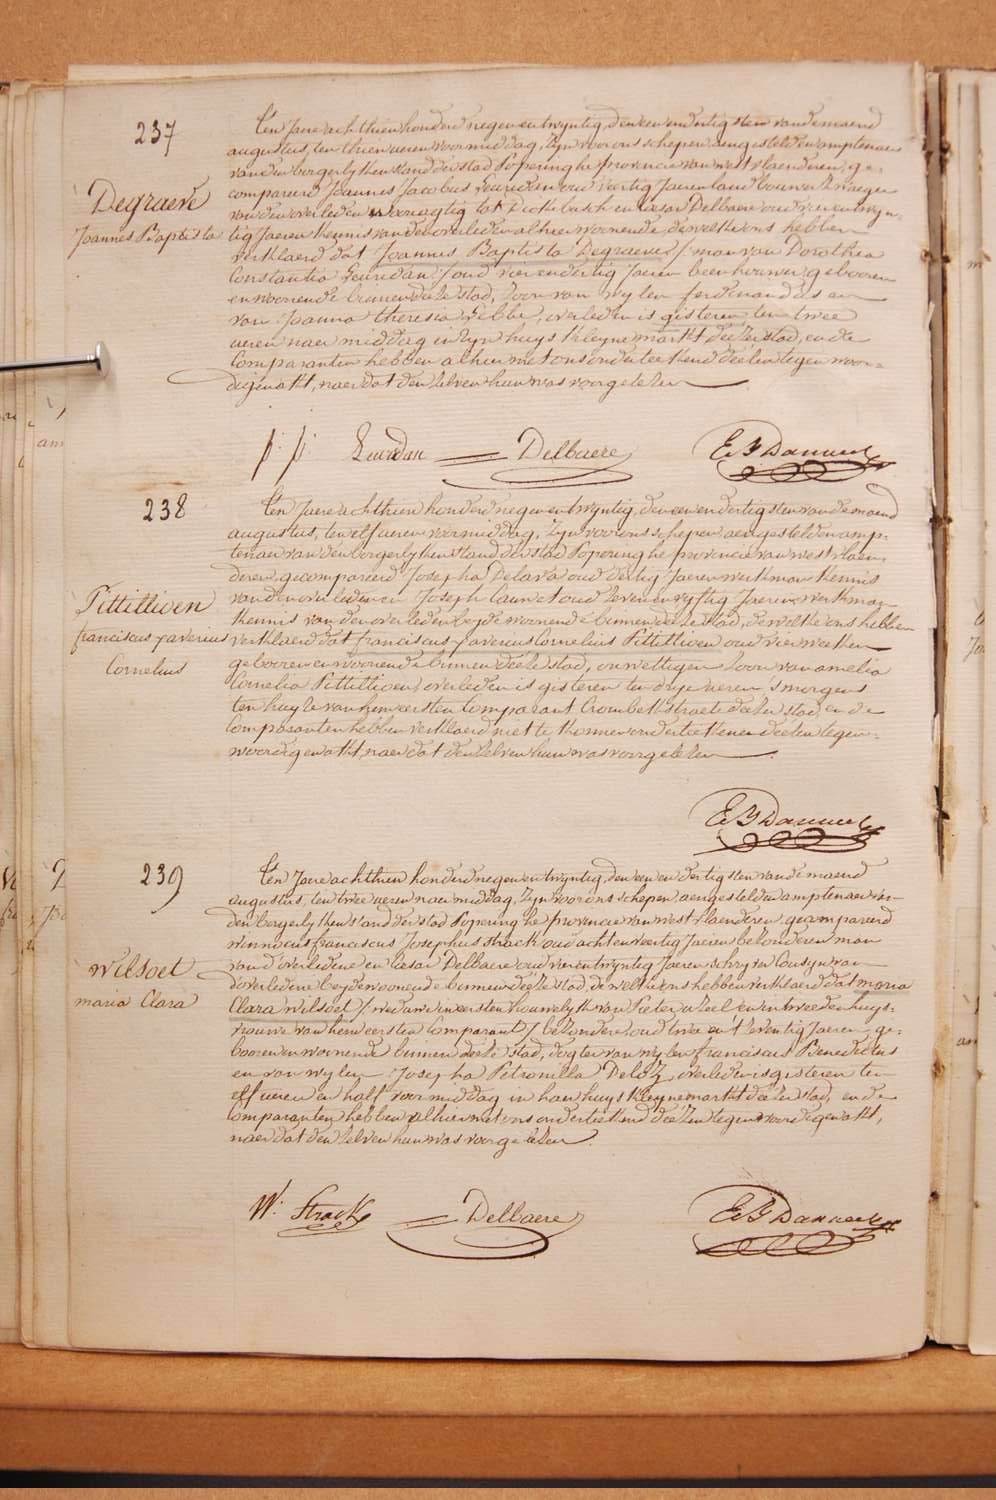 237
Degraeve
Joannes Baptista
Ten Jaere achthien honderd negen en twyntig, den een en dertigsten van de maend
augustus, ten thien ueren voormiddag, zyn voor ons schepen aengestelden amptenaer
van den borgerlyken stand der stad Poperinghe provincie van westvlaenderen, ge-
compareerd Joannes Jacobus Leuridan oud veertig Jaeren landbouwer zwaeger
van den overleden woonagtig tot Dickebusch en Cesar Delbaere oud vier en twyn-
tig Jaeren kennis van den overleden alhier woonende, dewelke ons hebben
verklaerd dat Joannes Baptista Degraeve / man van Dorothea
Constantia Leuridan / oud vier en dertig Jaeren beenhouwer, gebooren
en woonende binnen deeze stad, zoon van wylen ferdinandus en
van Joanna theresia Lebbe, overleden is gisteren ten twee
ueren naer middag in zyn huys kleyne markt deezer stad, en de
Comparanten hebben alhier met ons onderteekend deezen tegenwoor-
digen akt, naer dat den zelven hun was voorgelezen
p. p. Leuridan Delbaere
238
Tittillion
franciscus xaverius
Cornelius
Ten Jaere achthien honderd negen en twyntig, den een en dertigsten van de maend
augustus, ten elf ueren voormiddag, zyn voor ons schepen aengestelden amp-
tenaer van den borgerlyken stand der stad Poperinghe provincie van westvlaen-
deren, gecompareerd Josepha oud dertig Jaeren werkman kennis
van den overledenen Joseph oud zeven en vyftig Jaeren, werkman
kennis van den overleden beyde woonende binnen deeze stad, dewelke ons hebben
verklaerd dat franciscus xaverius Cornelius Tittillion oud vier weeken
gebooren en woonende binnen deeze stad, onwettigen zoon van amelia
Cornelia Tittillion / overleden is gisteren ten drye ueren 's morgens
ten huyze van hem eersten Comparant Crombekstraete deezer stad, en de
Comparanten hebben verklaerd niet te konnen onderteekenen deezen tegen-
woordigen akt, naer dat den zelven hun was voorgelezen
239
Wilsoet
maria Clara
Ten Jaere achthien honderd negen en twyntig, den een en dertigsten van de maend
augustus, ten twee ueren naer middag, zyn voor ons schepen aengestelden amptenaer van
den borgerlyken stand der stad Poperinghe provincie van westvlaenderen, gecompareerd
Winnocus franciscus Josephus Strack oud acht en veertig Jaeren bezonderen man
van d'overledene en Cesar Delbaere oud vier en twyntig Jaeren schryver Cousyn van
d'overledene beyde woonende binnen deeze stad, dewelke ons hebben verklaerd dat maria
Clara Wilsoet / weduwe in eersten houwelyk van Pieter en in tweeden huys-
vrouwe van hem eersten Comparant / bezondere, oud twee en t'zeventig Jaeren, ge-
booren en woonende binnen deeze stad, dogter van wylen franciscus Benedictus
en van wylen Josepha Petronilla overleden is gisteren ten
elf ueren en half voormiddag in haer huys kleyne markt deezer stad, en de
Comparanten hebben alhier met ons onderteekend deezen tegenwoordigen akt,
naer dat den zelven hun was voorgelezen.
W. Strack Delbaere